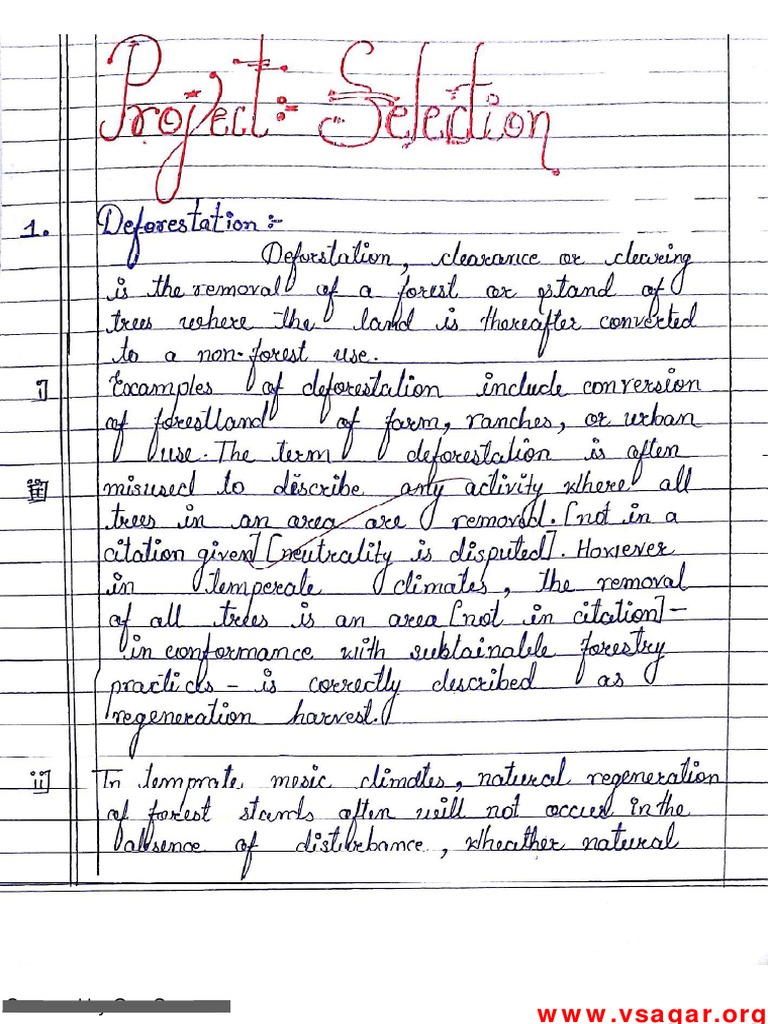 Project:- Selection
1. Deforestation :-
Deforstation, clearance or clearing
is the removal of a forest or stand of
trees where the land is thereafter converted
to a non-forest use.
i] Examples of deforestation include conversion
of forestland of farm, ranches, or urban
use. The term deforestation is often
misused to describe any activity where all
trees in an area are removed. [not in a
citation given] [neutrality is disputed]. However
in temperate climates, the removal
of all trees is an area [not in citation]-
in conformance with sublainable forestry
practicks - is correctly described as
regeneration harvest.
ii] In temprate mesic climates, natural regeneration
of forest stands often will not occur in the
absence of distubance, wheather natural
www.vsagar.org